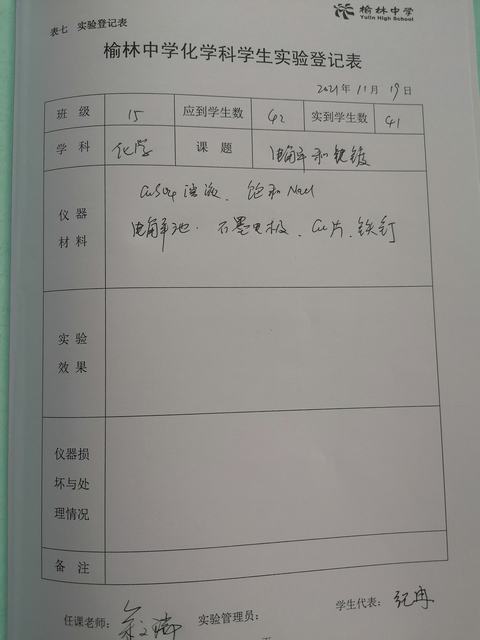 榆林中学
Yulin High School
表七 实验登记表
榆林中学化学科学生实验登记表
2021年11月19日
班级 15 应到学生数 42 实到学生数 41
学科 化学 课题 电解和镀
仪器材料 CuSO4溶液、饱和NaCl
电解池、石墨电极、Cu片、铁钉
实验效果
仪器损坏与处理情况
备注
任课老师： 实验管理员： 学生代表：